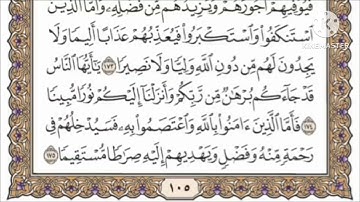 فَيُوَفِّيهِمْ أُجُورَهُمْ وَيَزِيدُهُم مِّن فَضْلِهِۦ وَأَمَّا ٱلَّذِينَ
ٱسْتَنكَفُوا۟ وَٱسْتَكْبَرُوا۟ فَيُعَذِّبُهُمْ عَذَابًا أَلِيمًا وَلَا
يَجِدُونَ لَهُم مِّن دُونِ ٱللَّهِ وَلِيًّا وَلَا نَصِيرًا ١٧٣ يَٰٓأَيُّهَا ٱلنَّاسُ
قَدْ جَآءَكُم بُرْهَٰنٌ مِّن رَّبِّكُمْ وَأَنزَلْنَآ إِلَيْكُمْ نُورًا مُّبِينًا
١٧٤ فَأَمَّا ٱلَّذِينَ ءَامَنُوا۟ بِٱللَّهِ وَٱعْتَصَمُوا۟ بِهِۦ فَسَيُدْخِلُهُمْ فِى
رَحْمَةٍ مِّنْهُ وَفَضْلٍ وَيَهْدِيهِمْ إِلَيْهِ صِرَٰطًا مُّسْتَقِيمًا ١٧٥
١٠٥
KINEMASTER